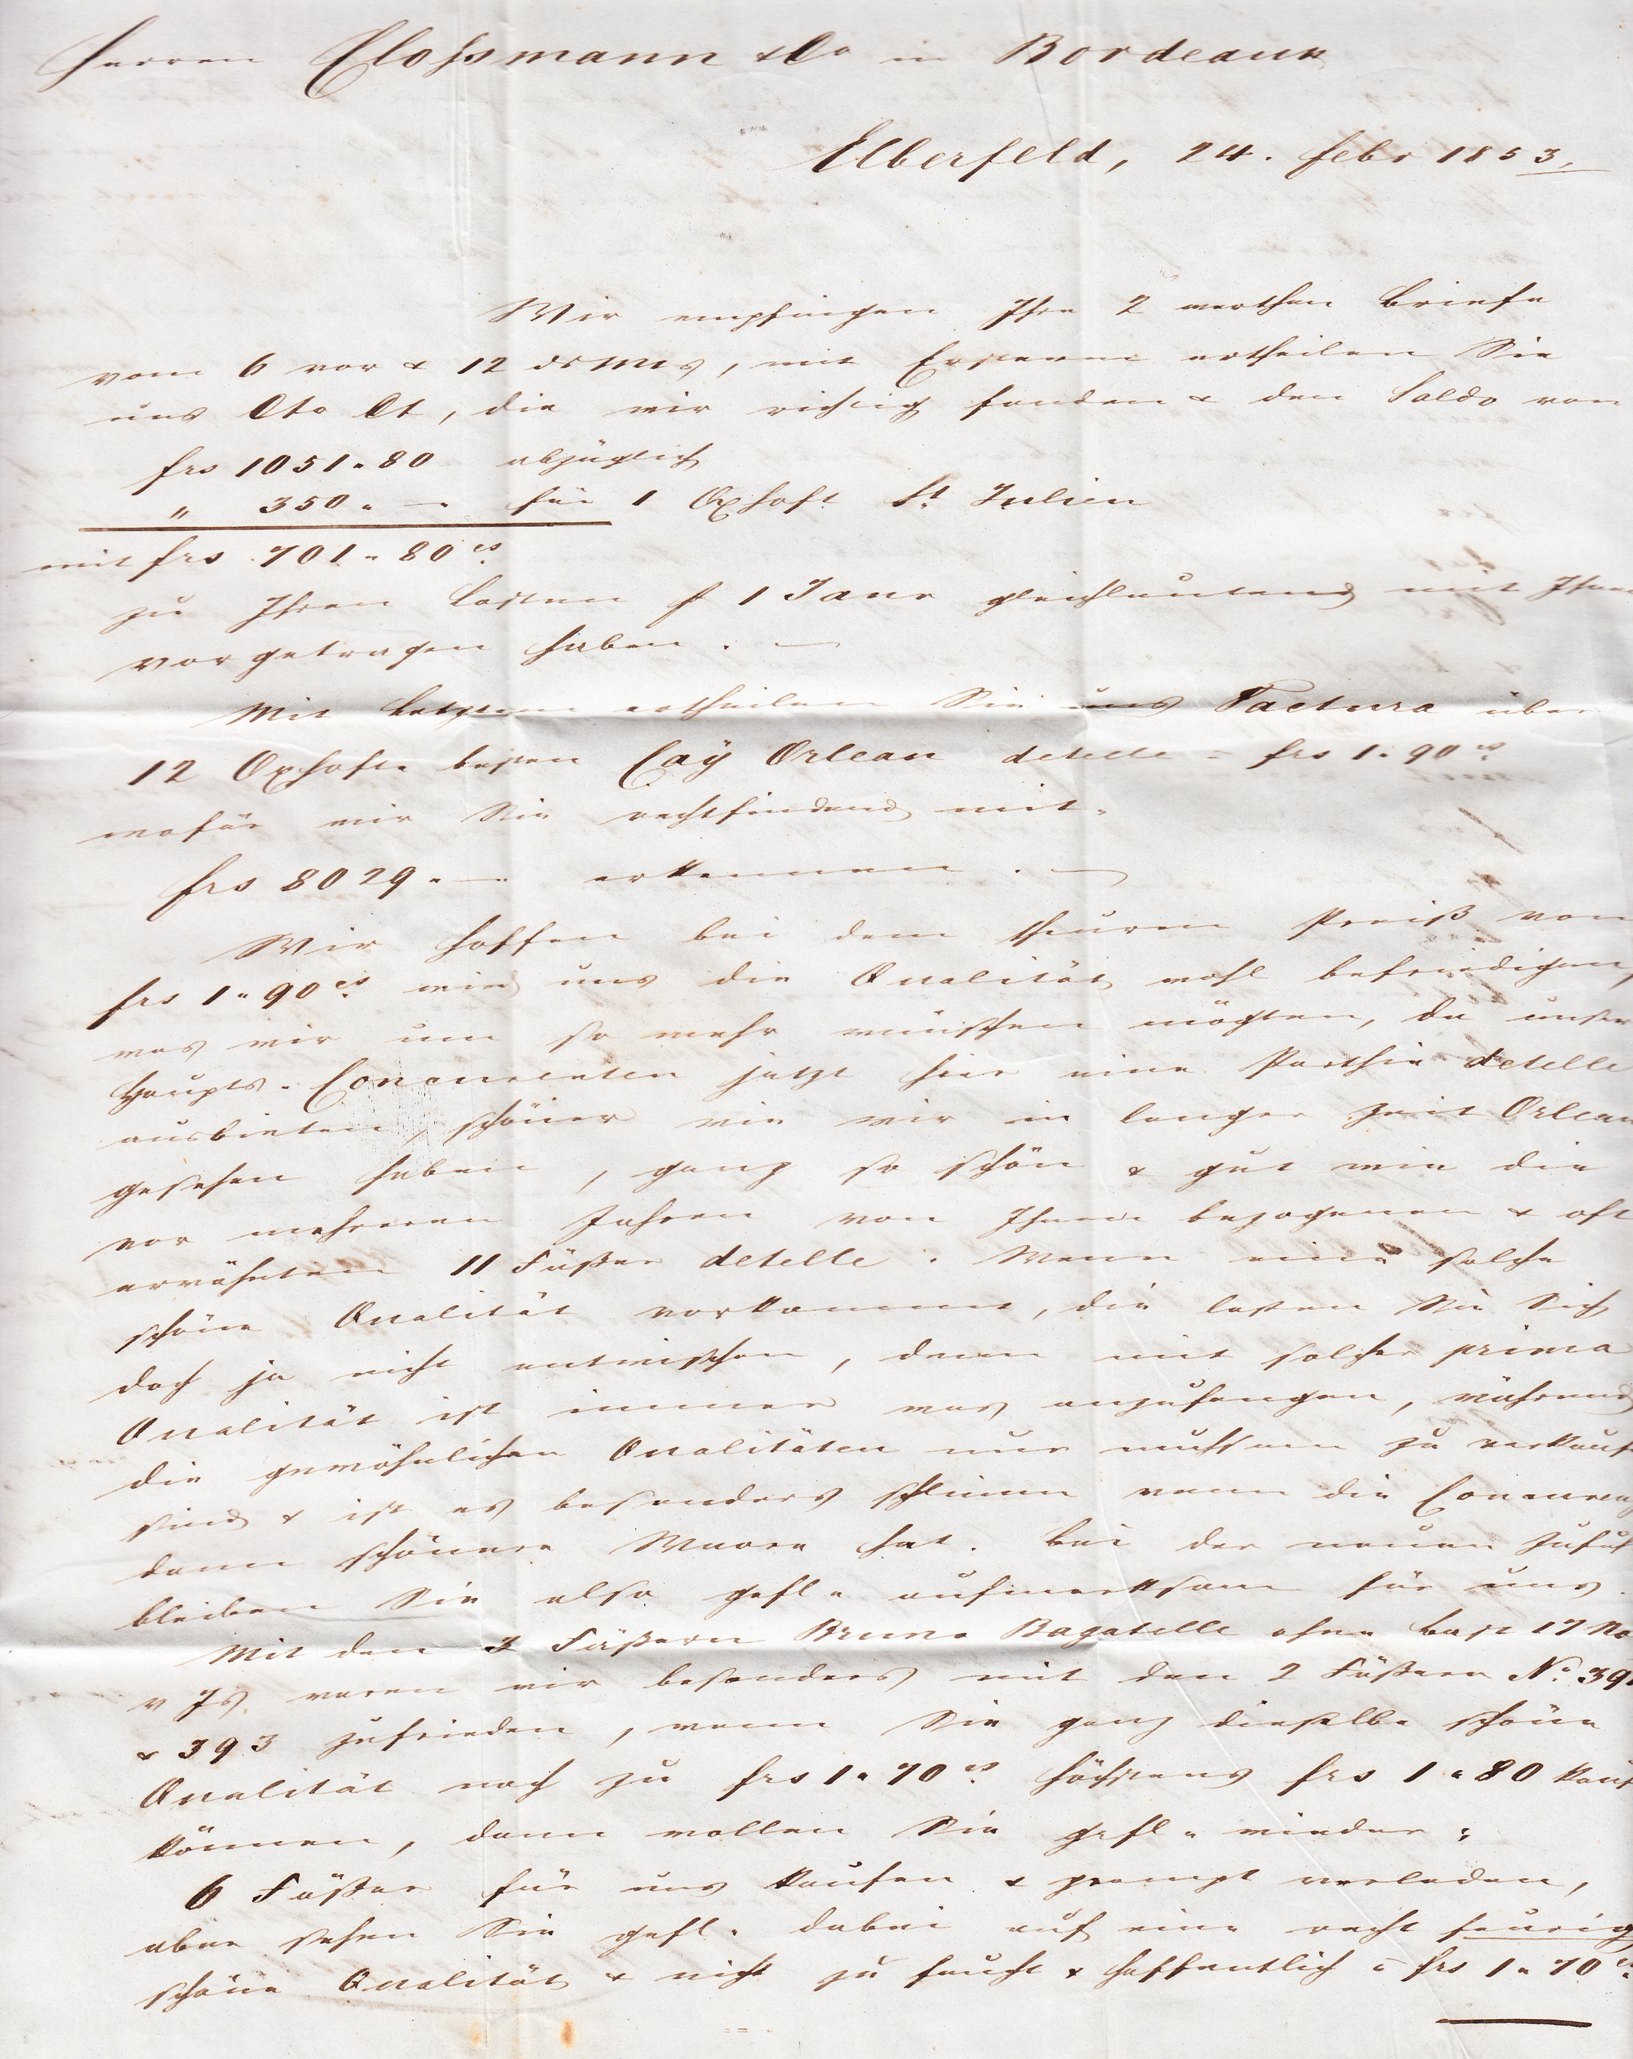 Herren Clossmann & Co in Bordeaux
Elberfeld, 24. Febr 1853.
Wir empfingen Ihre 2 werthen Briefe
vom 6 vor & 12 ds Mts, mit Ersterem ertheilen Sie
uns Cto Ct, die wir richtig fanden & den Saldo von
frs 1051.80 abzüglich
" 350. — für 1 Oxhoft St. Julien
mit frs 701.80 cs
zu Ihren Lasten p 1 Janr gleichlautend mit Ihnen
vorgetragen haben. —
Mit Letzterem ertheilen Sie uns Factura über
12 Oxhofte besten Caÿ Orlean detelle = frs 1.90 cs
wofür wir Sie rechtfindend mit.
frs 8029. — erkennen. —
Wir hoffen bei dem theuren Preiß von
frs 1.90 cs wird uns die Qualität wohl befriedigen,
was wir um so mehr wünschen mögten, da unsere
Haupts. Concurenten jetzt hier eine Parthie detelle
ausbieten, schöner wie wir in langer Zeit Orlean
gesehen haben, ganz so schön & gut wie die
vor mehreren Jahren von Ihnen bezogenen & oft
erwähnten 11 Fäßer detelle. Wenn eine solche
schöne Qualität vorkommt, die laßen Sie Sich
doch ja nicht entwischen, denn mit solcher prima
Qualität ist immer was anzufangen, während
die gewöhnlichen Qualitäten nur muhsam zu verkauf
sind & ist es besonders schlimm wenn die Concurenz
dann schönere Waare hat. Bei der neuen Zufuh
bleiben Sie also gefl. aufmerksam für uns.
Mit den Fäßern Prune Bagatelle ohne Bast 17 No
v Js. waren wir besonders mit den 2 Fäßern No. 39
& 393 zufrieden, wenn Sie ganz dieselbe schöne
Qualität noch zu frs 1.70 cs. höchstens frs 1.80 kauf
können, dann wollen Sie gefl. wieder:
6 Fäßer für uns kaufen & prompt verladen,
aber sehen Sie gefl. dabei auf eine recht feurig
schöne Qualität & nicht zu feucht & hoffentlich = frs 1.70 cs.